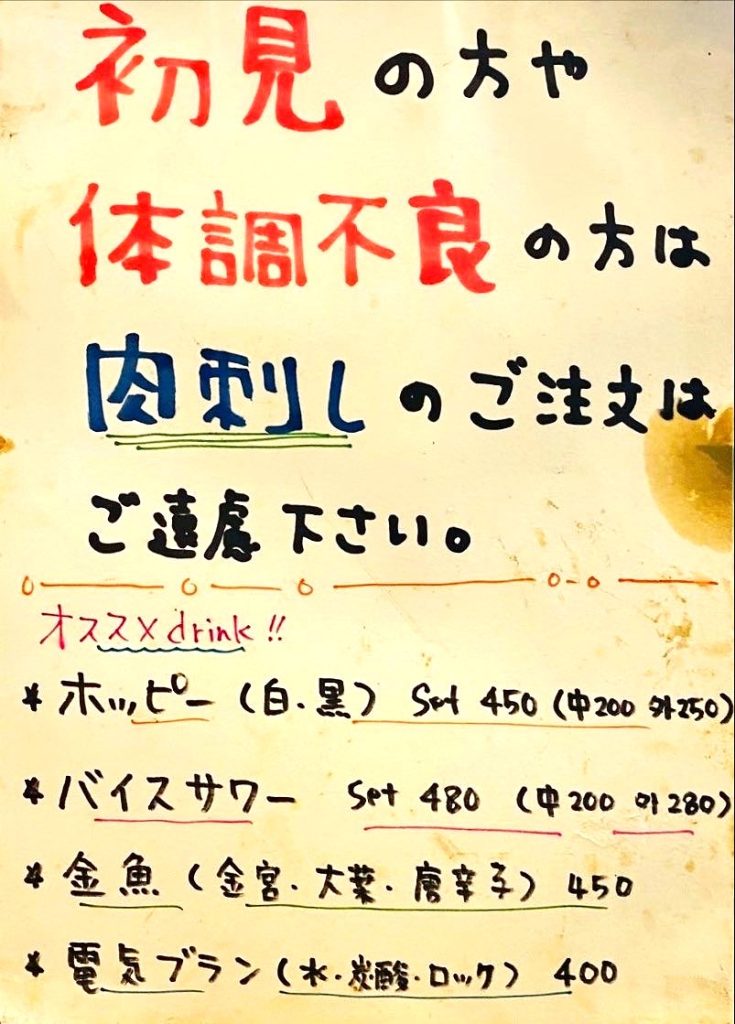 初見の方や
体調不良の方は
肉刺しのご注文は
ご遠慮下さい。
オススメdrink!!
* ホッピー (白・黒) Set 450 (中200 外250)
* バイスサワー Set 480 (中200 外280)
* 金魚 (金宮・大葉・唐辛子) 450
* 電気ブラン (水・炭酸・ロック) 400